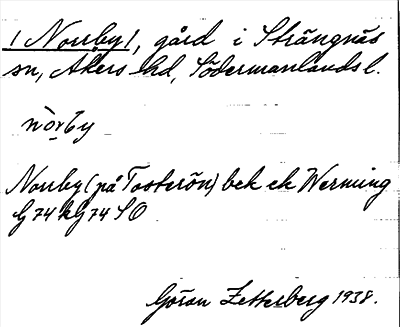 / Norrby /, gård i Strängnäs
sn, Åkers hd, Södermanlands l.
nòrby
Norrby (på Tosterön) bek ek Werming
G 74 kG 74 SO
Göran Zetterberg 1938.